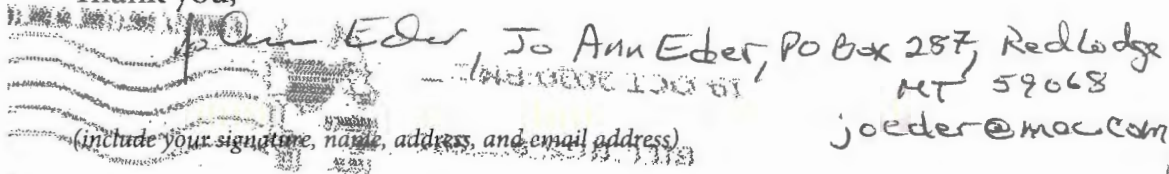 Thank you,
Jo Ann Eder, Jo Ann Eder, PO Box 287, Red Lodge
MT 59068
joeder@mac.com
(include your signature, name, address, and email address)